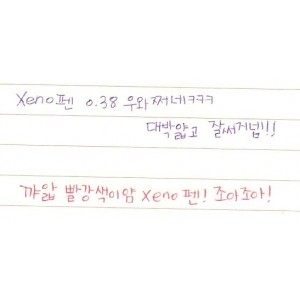 Xeno펜 0.38 우와쩌네ㅋㅋㅋ
대박얇고 잘써거넵!!
꺄앏 빨강색이얌 Xeno펜! 조아조아!